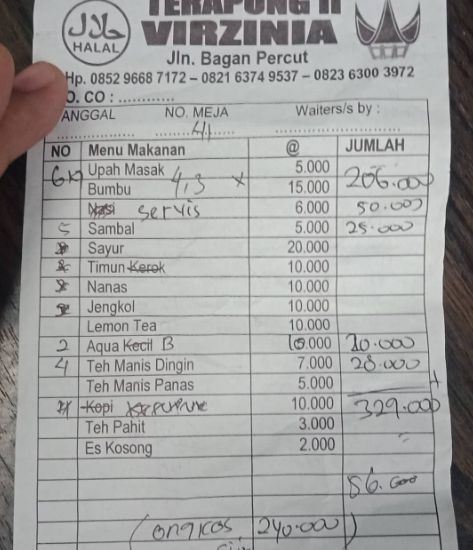 TERAPUNG II
HALAL
VIRZINIA
Jln. Bagan Percut
Hp. 0852 9668 7172 – 0821 6374 9537 – 0823 6300 3972
O. CO : ............
ANGGAL NO. MEJA Waiters/s by :
41
NO Menu Makanan @ JUMLAH
Upah Masak 5.000
Bumbu 4,3 x 15.000 206.000
Nasi servis 6.000 50.000
5 Sambal 5.000 25.000
Sayur 20.000
Timun Kerok 10.000
Nanas 10.000
Jengkol 10.000
Lemon Tea 10.000
2 Aqua Kecil B 10.000 20.000
4 Teh Manis Dingin 7.000 28.000
Teh Manis Panas 5.000
Kopi 10.000 329.000
Teh Pahit 3.000
Es Kosong 2.000
86.000
(ongkos 240.000)